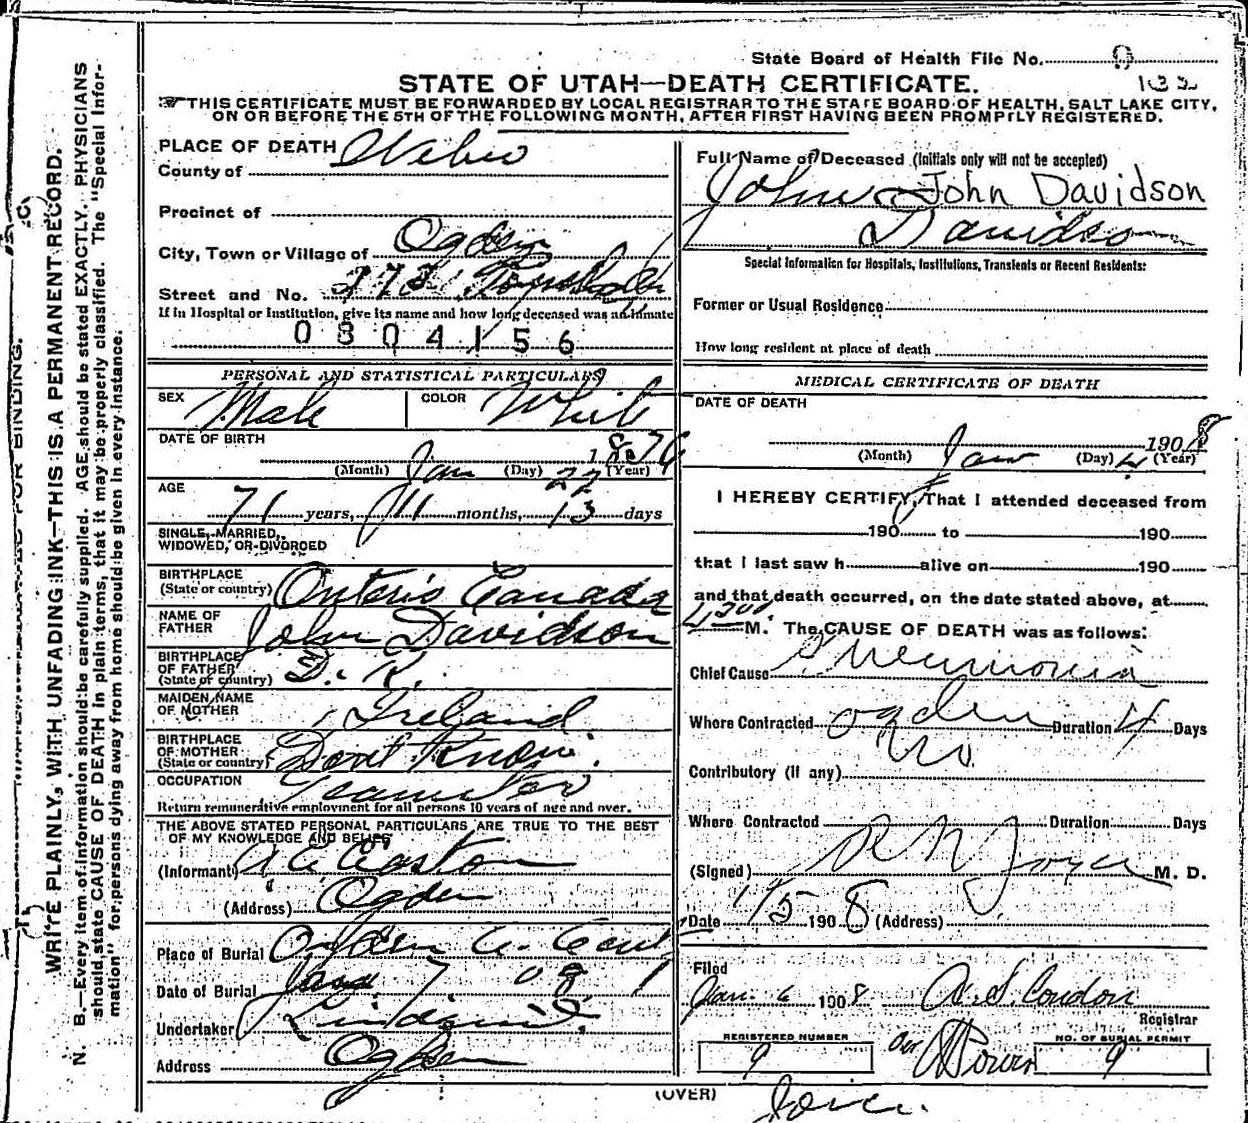 State Board of Health File No. 9
132
STATE OF UTAH—DEATH CERTIFICATE.
THIS CERTIFICATE MUST BE FORWARDED BY LOCAL REGISTRAR TO THE STATE BOARD OF HEALTH, SALT LAKE CITY,
ON OR BEFORE THE 5TH OF THE FOLLOWING MONTH, AFTER FIRST HAVING BEEN PROMPTLY REGISTERED.
PLACE OF DEATH
County of Weber
Precinct of
City, Town or Village of Ogden
Street and No.
If in Hospital or Institution, give its name and how long deceased was an inmate
0804156
PERSONAL AND STATISTICAL PARTICULARS
SEX Male COLOR White
DATE OF BIRTH
Jan 22
(Month) (Day) (Year)
AGE
71 years, 11 months, 13 days
SINGLE, MARRIED,
WIDOWED, OR DIVORCED
BIRTHPLACE
(State or country) Ontario Canada
NAME OF
FATHER John Davidson
BIRTHPLACE
OF FATHER
(State or country) D. K.
MAIDEN NAME
OF MOTHER Ireland
BIRTHPLACE
OF MOTHER
(State or country) Dont Know
OCCUPATION Teamster
Return remunerative employment for all persons 10 years of age and over.
THE ABOVE STATED PERSONAL PARTICULARS ARE TRUE TO THE BEST
OF MY KNOWLEDGE AND BELIEF
(Informant) Easton
(Address) Ogden
Place of Burial Ogden C. Cem
Date of Burial Jan 7 08
Undertaker Lindquist
Address Ogden
Full Name of Deceased (Initials only will not be accepted)
John John Davidson
Davidson
Special Information for Hospitals, Institutions, Transients or Recent Residents:
Former or Usual Residence
How long resident at place of death
MEDICAL CERTIFICATE OF DEATH
DATE OF DEATH
Jan 4 1908
(Month) (Day) (Year)
I HEREBY CERTIFY, That I attended deceased from
190 to 190
that I last saw h alive on 190
and that death occurred, on the date stated above, at
M. The CAUSE OF DEATH was as follows:
Chief Cause Pneumonia
Where Contracted Ogden Duration 4 Days
Contributory (if any) No
Where Contracted Duration Days
(Signed) Joyce M. D.
Date 1/5 1908 (Address)
Filed
Jan. 6 1908 Condon
Registrar
REGISTERED NUMBER
9
NO. OF BURIAL PERMIT
9
(OVER)
WRITE PLAINLY, WITH UNFADING INK—THIS IS A PERMANENT RECORD.
N. B.—Every item of information should be carefully supplied. AGE should be stated EXACTLY. PHYSICIANS
should state CAUSE OF DEATH in plain terms, that it may be properly classified. The "Special Infor-
mation" for persons dying away from home should be given in every instance.
FOR BINDING.